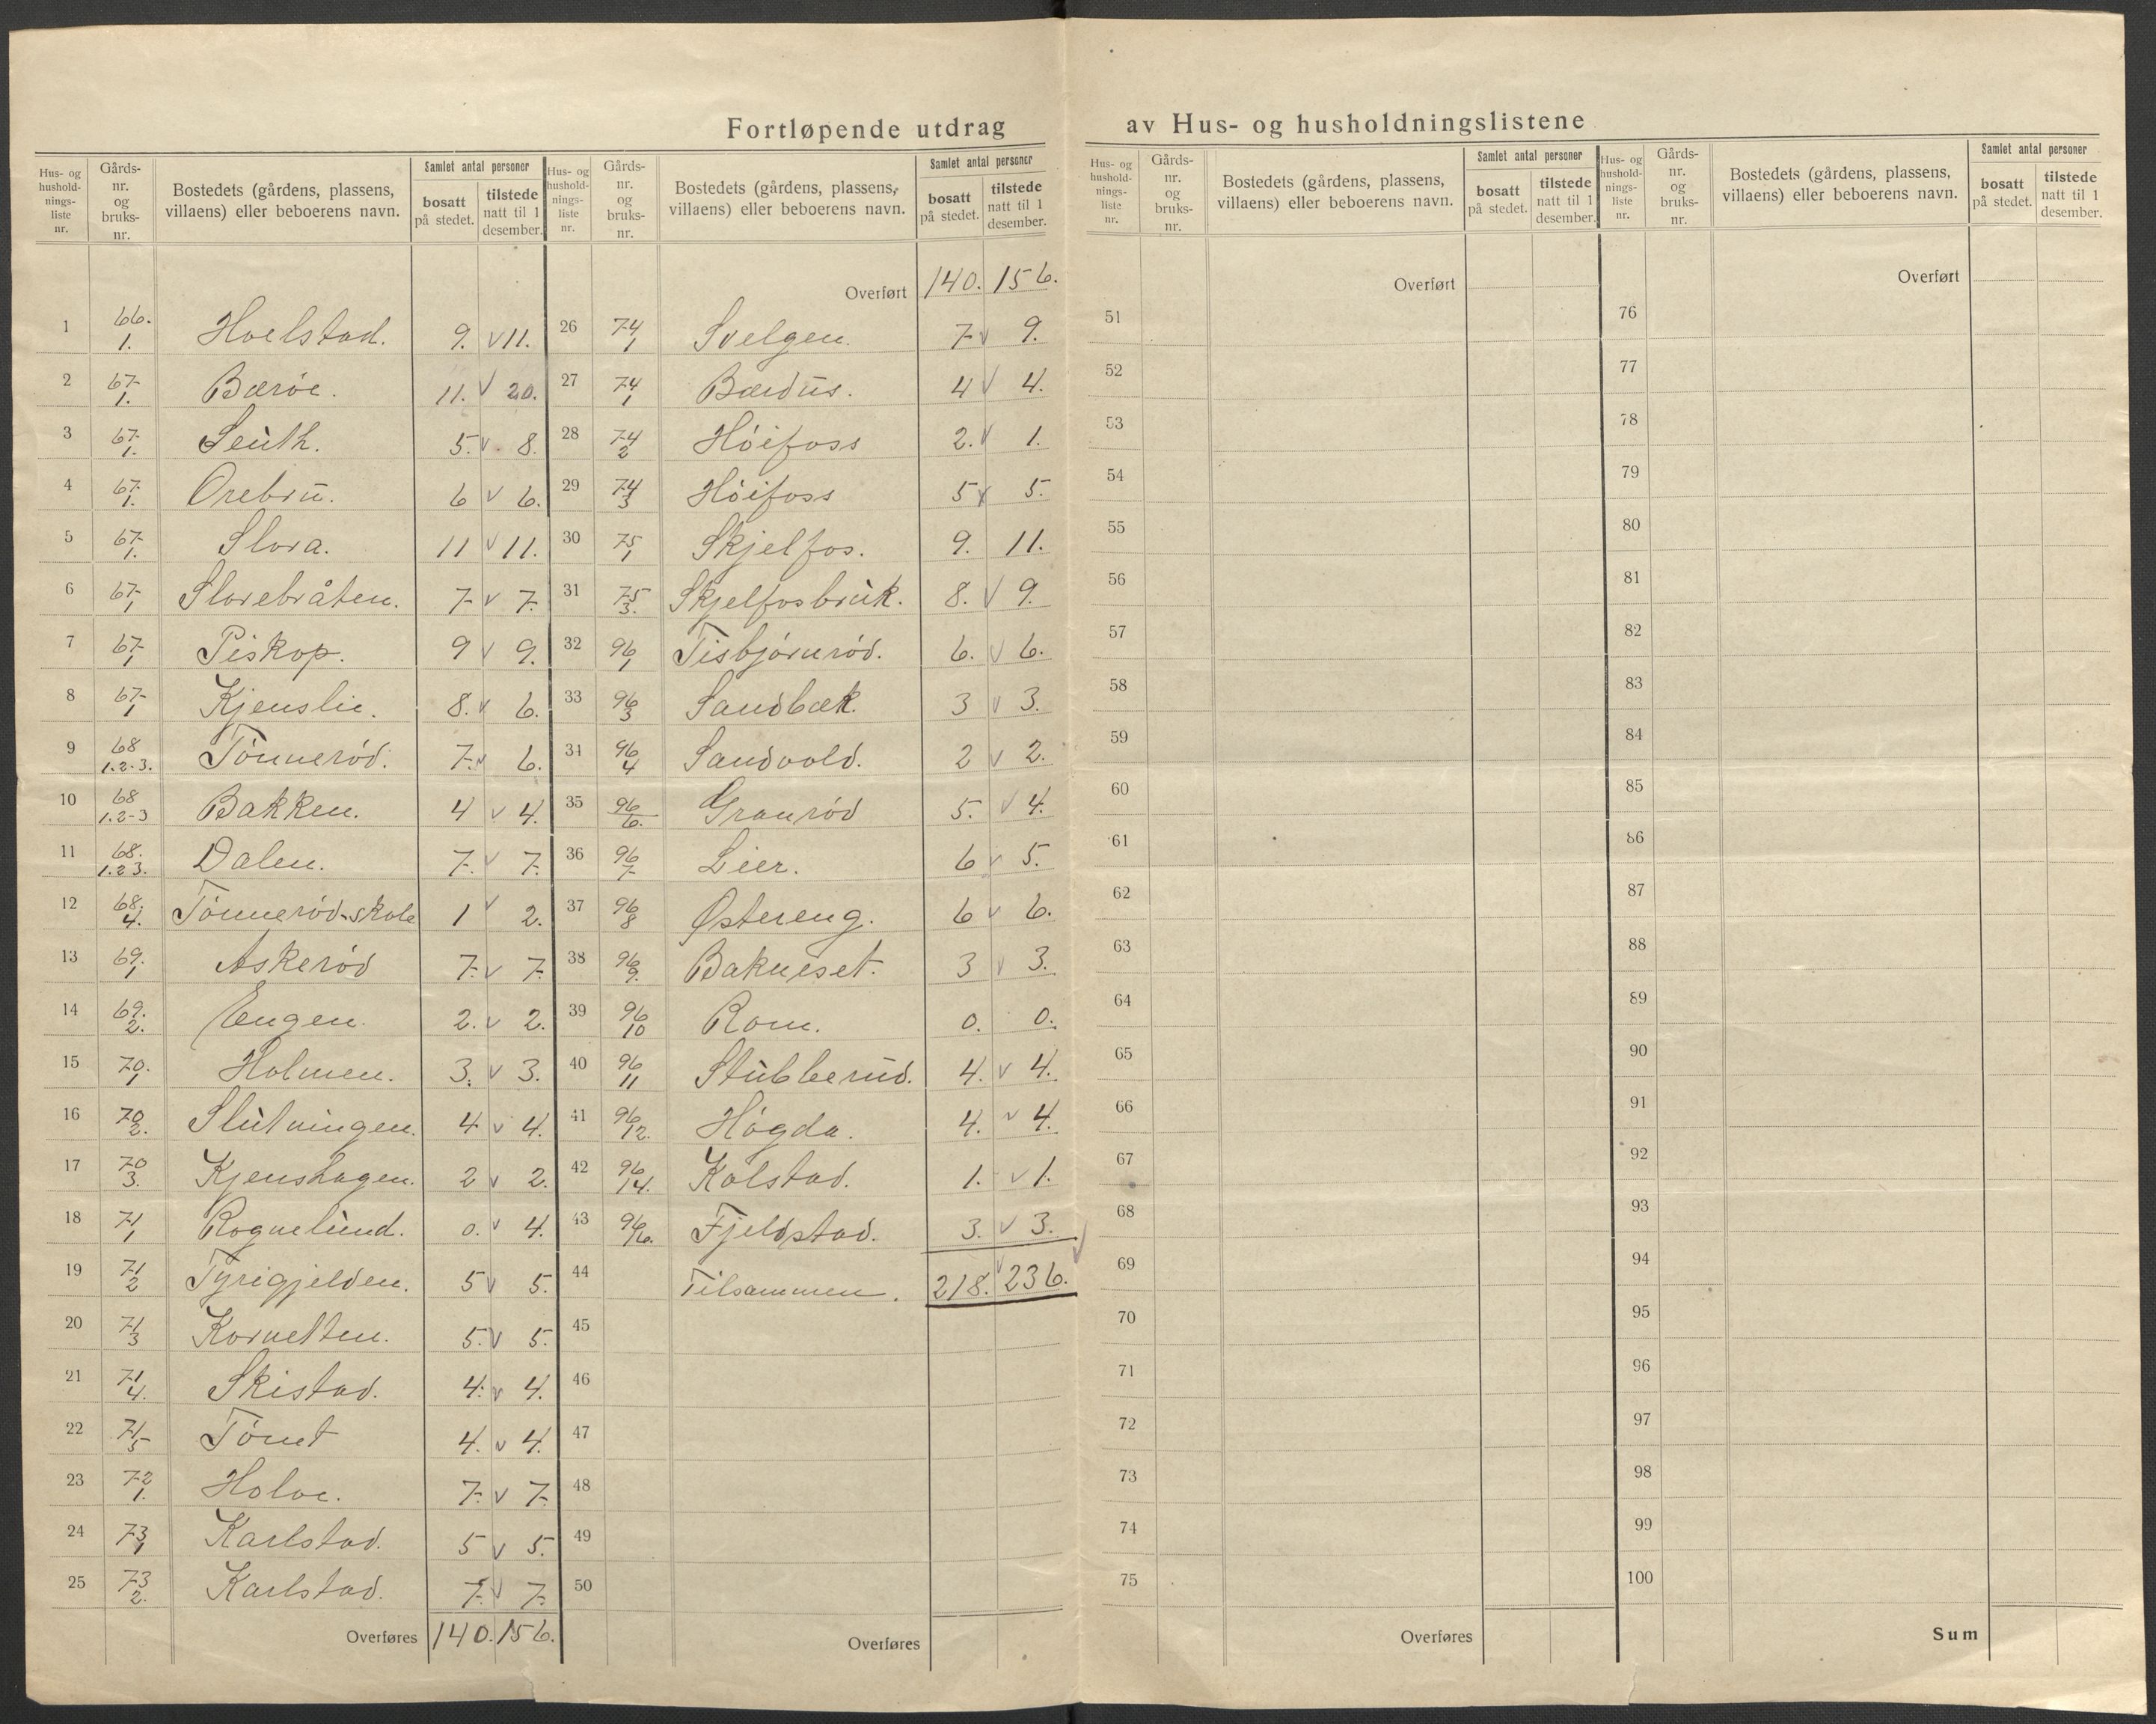 Fortløpende utdrag av Hus- og husholdningslistene
Hus- og husholdningsliste nr. | Gårds-nr. og bruks-nr. | Bostedets (gårdens, plassens, villaens) eller beboerens navn. | Samlet antal personer | bosatt på stedet. | tilstede natt til 1 desember.
1 66. 1. Hoelstad. 9. v 11.
2 67- 1. Bærøe. 11. v 20.
3 67- 1. Seuth. 5. v 8.
4 67. 1. Orebru. 6 v 6.
5 67- 1. Slora. 11 v 11.
6 67- 1 Slorebråten. 7- v 7.
7 67- 1 Piskop. 9 v 9.
8 67- 1 Kjenslie. 8. v 6.
9 68 1.2-3. Tönnerød. 7. v 6.
10 68 1.2-3 Bakken. 4 v 4.
11 68. 1.2 3. Dalen. 7. v 7.
12 68. 4. Tönnerød-skole 1 v 2.
13 69. 1 Askerød 7. v 7.
14 69. 2. Engen. 2. v 2.
15 70. 1 Holmen. 3. v 3.
16 70 2. Slutningen. 4 v 4.
17 70 3. Kjenshagen. 2 v 2.
18 71 1 Rognelund. 0. v 4.
19 71 2 Tyrigjelden. 5 v 5.
20 71 3 Kornetten. 5. v 5.
21 71 4. Skistad. 4. v 4.
22 71 5 Tömt 4. v 4.
23 72 1. Holoe. 7. v 7.
24 73 1 Karlstad. 5 v 5.
25 73 2. Karlstad. 7. v 7.
Overføres 140. 156.
Hus- og husholdningsliste nr. | Gårds-nr. og bruks-nr. | Bostedets (gårdens, plassens, villaens) eller beboerens navn. | Samlet antal personer | bosatt på stedet. | tilstede natt til 1 desember.
Overført 140. 156.
26 74 1 Svelgen. 7 v 9.
27 74 1 4 v 4.
28 74 2 Höifoss 2. v 1.
29 74 3 Höifoss 5 v 5.
30 75 1 Skjelfos. 9. 11.
31 75 3. Skjelfosbruk. 8. v 9.
32 96 1 Tisbjørnrød. 6. v 6.
33 96 3 Sandbæk. 3 v 3.
34 96 4 Sandvold. 2 v 2.
35 96 6. Granrød 5. v 4.
36 96 7- Lier. 6 v 5.
37 96 8 Østereng. 6 v 6.
38 96 9. Bakneset. 3 v 3.
39 96 10 Rom. 0. 0.
40 96 11 Stubberud. 4. v 4.
41 96 12. Høgda. 4. v 4.
42 96 14. Kolstad. 1. v 1.
43 96 Fjeldstad. 3. v 3.
44 Tilsammen. 218. v 236.
45
46
47
48
49
50
Overføres
Hus- og husholdnings-liste nr. | Gårds-nr. og bruks-nr. | Bostedets (gårdens, plassens, villaens) eller beboerens navn. | Samlet antal personer | bosatt på stedet. | tilstede natt til 1 desember.
Overført
51
52
53
54
55
56
57
58
59
60
61
62
63
64
65
66
67
68
69
70
71
72
73
74
75
Overføres
Hus- og husholdnings-liste nr. | Gårds-nr. og bruks-nr. | Bostedets (gårdens, plassens, villaens) eller beboerens navn. | Samlet antal personer | bosatt på stedet. | tilstede natt til 1 desember.
Overført
76
77
78
79
80
81
82
83
84
85
86
87
88
89
90
91
92
93
94
95
96
97
98
99
100
Sum